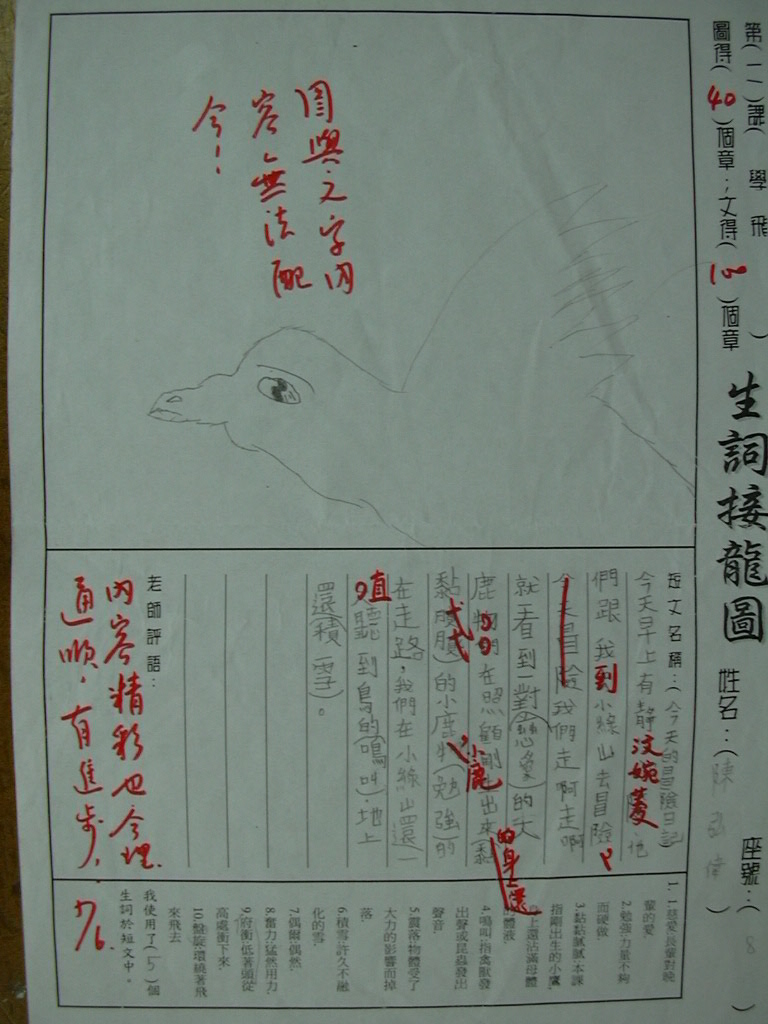 第(一一)課(學飛)
圖得(40)個章;文得(100)個章
生詞接龍圖
姓名:(陳
座號:(8)
圖與文字內
容無法配
合!
短文名稱:(今天的冒險日記
今天早上有靜
沒婉菱
他
們跟我到小綠山去冒險,
今天冒險我們走啊走啊
就看到一對(慈
的大
鹿
在照顧剛
出來
小鹿
的身上還
黏膩膩)的小鹿
(勉強)的
在走路,我們在小綠山還一
直聽到鳥的(鳴叫)。地上
還(積雪)。
老師評語:
內容精彩也合理
通順,有進步,
7/6.
1.慈愛:長輩對晚
輩的愛.
2.勉強:力量不夠
而硬做.
3.黏黏膩膩:本課
指剛出生的小鷹
身上還沾滿母體
的體液
4.鳴叫:指禽獸發
出聲或昆蟲發出
聲音
5.震落:物體受了
大力的影響而掉
落
6.積雪:許久不融
化的雪.
7.偶爾:偶然.
8.奮力:猛然用力.
9.俯衝:低著頭從
高處衝下來.
10.盤旋:環繞著飛
來飛去
我使用了(5)個
生詞於短文中。